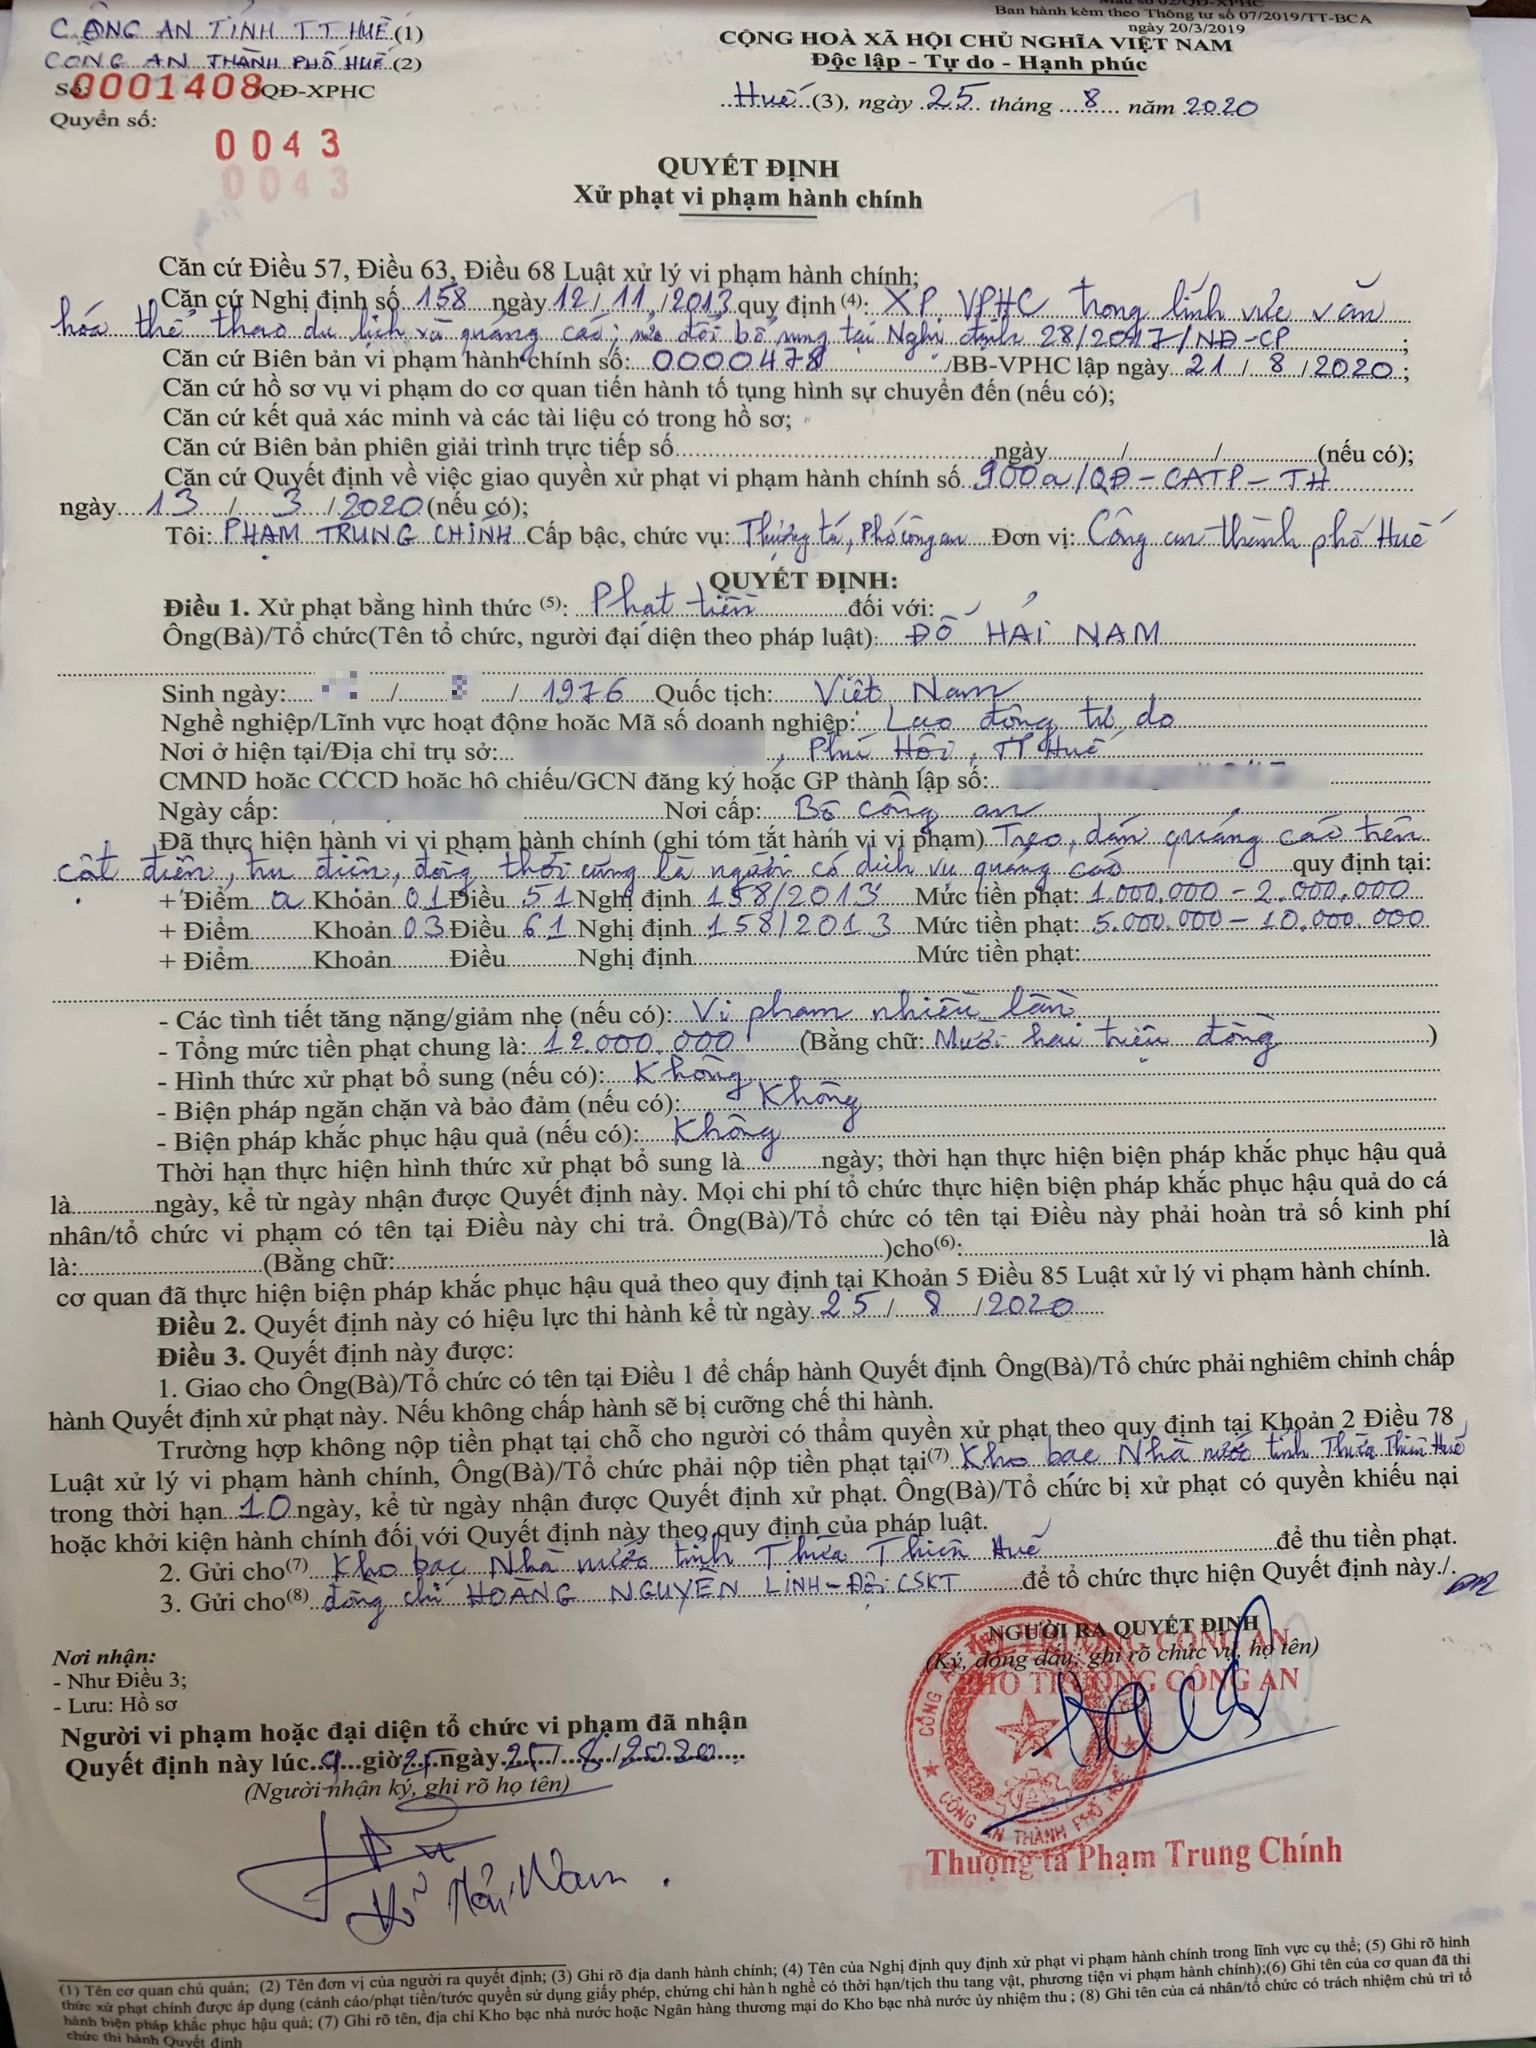 Mẫu số 02/QĐ-XPHC
Ban hành kèm theo Thông tư số 07/2019/TT-BCA
ngày 20/3/2019
CÔNG AN TỈNH TT HUẾ (1)
CÔNG AN THÀNH PHỐ HUẾ (2)
Số: 0001408 QĐ-XPHC
Quyển số:
0043
0043
CỘNG HOÀ XÃ HỘI CHỦ NGHĨA VIỆT NAM
Độc lập - Tự do - Hạnh phúc
Huế (3), ngày 25 tháng 8 năm 2020
QUYẾT ĐỊNH
Xử phạt vi phạm hành chính
Căn cứ Điều 57, Điều 63, Điều 68 Luật xử lý vi phạm hành chính;
Căn cứ Nghị định số 158 ngày 12/11/2013 quy định (4): XP VPHC trong lĩnh vực văn
hóa thể thao du lịch và quảng cáo; sửa đổi bổ sung tại Nghị định 28/2017/NĐ-CP ;
Căn cứ Biên bản vi phạm hành chính số: 0000478 /BB-VPHC lập ngày 21/8/2020;
Căn cứ hồ sơ vụ vi phạm do cơ quan tiến hành tố tụng hình sự chuyển đến (nếu có);
Căn cứ kết quả xác minh và các tài liệu có trong hồ sơ;
Căn cứ Biên bản phiên giải trình trực tiếp số........ngày......../......../........(nếu có);
Căn cứ Quyết định về việc giao quyền xử phạt vi phạm hành chính số 900a/QĐ-CATP-TH
ngày 13/3/2020 (nếu có);
Tôi: PHẠM TRUNG CHÍNH Cấp bậc, chức vụ: Thượng tá, Phó công an Đơn vị: Công an thành phố Huế
QUYẾT ĐỊNH:
Điều 1. Xử phạt bằng hình thức (5): Phạt tiền đối với:
Ông(Bà)/Tổ chức(Tên tổ chức, người đại diện theo pháp luật): ĐỖ HẢI NAM
Sinh ngày: / / 1976 Quốc tịch: Việt Nam
Nghề nghiệp/Lĩnh vực hoạt động hoặc Mã số doanh nghiệp: Lao động tự do
Nơi ở hiện tại/Địa chỉ trụ sở: , Phú Hội, TT Huế
CMND hoặc CCCD hoặc hộ chiếu/GCN đăng ký hoặc GP thành lập số:
Ngày cấp: Nơi cấp: Bộ công an
Đã thực hiện hành vi vi phạm hành chính (ghi tóm tắt hành vi vi phạm) Treo, dán quảng cáo trên
cột điện, trụ điện, đồng thời cũng là người có dịch vụ quảng cáo quy định tại:
+ Điểm a Khoản 01 Điều 51 Nghị định 158/2013 Mức tiền phạt: 1.000.000 - 2.000.000
+ Điểm Khoản 03 Điều 61 Nghị định 158/2013 Mức tiền phạt: 5.000.000 - 10.000.000
+ Điểm Khoản Điều Nghị định Mức tiền phạt:
- Các tình tiết tăng nặng/giảm nhẹ (nếu có): Vi phạm nhiều lần
- Tổng mức tiền phạt chung là: 12.000.000 (Bằng chữ: Mười hai triệu đồng)
- Hình thức xử phạt bổ sung (nếu có): Không
- Biện pháp ngăn chặn và bảo đảm (nếu có): Không
- Biện pháp khắc phục hậu quả (nếu có): Không
Thời hạn thực hiện hình thức xử phạt bổ sung là........ngày; thời hạn thực hiện biện pháp khắc phục hậu quả
là........ngày, kể từ ngày nhận được Quyết định này. Mọi chi phí tổ chức thực hiện biện pháp khắc phục hậu quả do cá
nhân/tổ chức vi phạm có tên tại Điều này chi trả. Ông(Bà)/Tổ chức có tên tại Điều này phải hoàn trả số kinh phí
là:........(Bằng chữ:........)cho(6):........là
cơ quan đã thực hiện biện pháp khắc phục hậu quả theo quy định tại Khoản 5 Điều 85 Luật xử lý vi phạm hành chính.
Điều 2. Quyết định này có hiệu lực thi hành kể từ ngày 25/8/2020
Điều 3. Quyết định này được:
1. Giao cho Ông(Bà)/Tổ chức có tên tại Điều 1 để chấp hành Quyết định. Ông(Bà)/Tổ chức phải nghiêm chỉnh chấp
hành Quyết định xử phạt này. Nếu không chấp hành sẽ bị cưỡng chế thi hành.
Trường hợp không nộp tiền phạt tại chỗ cho người có thẩm quyền xử phạt theo quy định tại Khoản 2 Điều 78
Luật xử lý vi phạm hành chính, Ông(Bà)/Tổ chức phải nộp tiền phạt tại(7) Kho bạc Nhà nước tỉnh Thừa Thiên Huế
trong thời hạn 10 ngày, kể từ ngày nhận được Quyết định xử phạt. Ông(Bà)/Tổ chức bị xử phạt có quyền khiếu nại
hoặc khởi kiện hành chính đối với Quyết định này theo quy định của pháp luật.
2. Gửi cho(7) Kho bạc Nhà nước tỉnh Thừa Thiên Huế để thu tiền phạt.
3. Gửi cho(8) đồng chí HOÀNG NGUYÊN LINH - Đội CSKT để tổ chức thực hiện Quyết định này./.
Nơi nhận:
- Như Điều 3;
- Lưu: Hồ sơ
Người vi phạm hoặc đại diện tổ chức vi phạm đã nhận
Quyết định này lúc 9 giờ 25 ngày 25/8/2020
(Người nhận ký, ghi rõ họ tên)
Đỗ Hải Nam.
NGƯỜI RA QUYẾT ĐỊNH
(Ký, đóng dấu; ghi rõ chức vụ, họ tên)
KT. TRƯỞNG CÔNG AN
PHÓ TRƯỞNG CÔNG AN
CÔNG AN THÀNH PHỐ
Thượng tá Phạm Trung Chính
(1) Tên cơ quan chủ quản; (2) Tên đơn vị của người ra quyết định; (3) Ghi rõ địa danh hành chính; (4) Tên của Nghị định quy định xử phạt vi phạm hành chính trong lĩnh vực cụ thể; (5) Ghi rõ hình
thức xử phạt chính được áp dụng (cảnh cáo/phạt tiền/tước quyền sử dụng giấy phép, chứng chỉ hành nghề có thời hạn/tịch thu tang vật, phương tiện vi phạm hành chính);(6) Ghi tên của cơ quan đã thi
hành biện pháp khắc phục hậu quả; (7) Ghi rõ tên, địa chỉ Kho bạc nhà nước hoặc Ngân hàng thương mại do Kho bạc nhà nước ủy nhiệm thu ; (8) Ghi tên của cá nhân/tổ chức có trách nhiệm chủ trì tổ
chức thi hành Quyết định